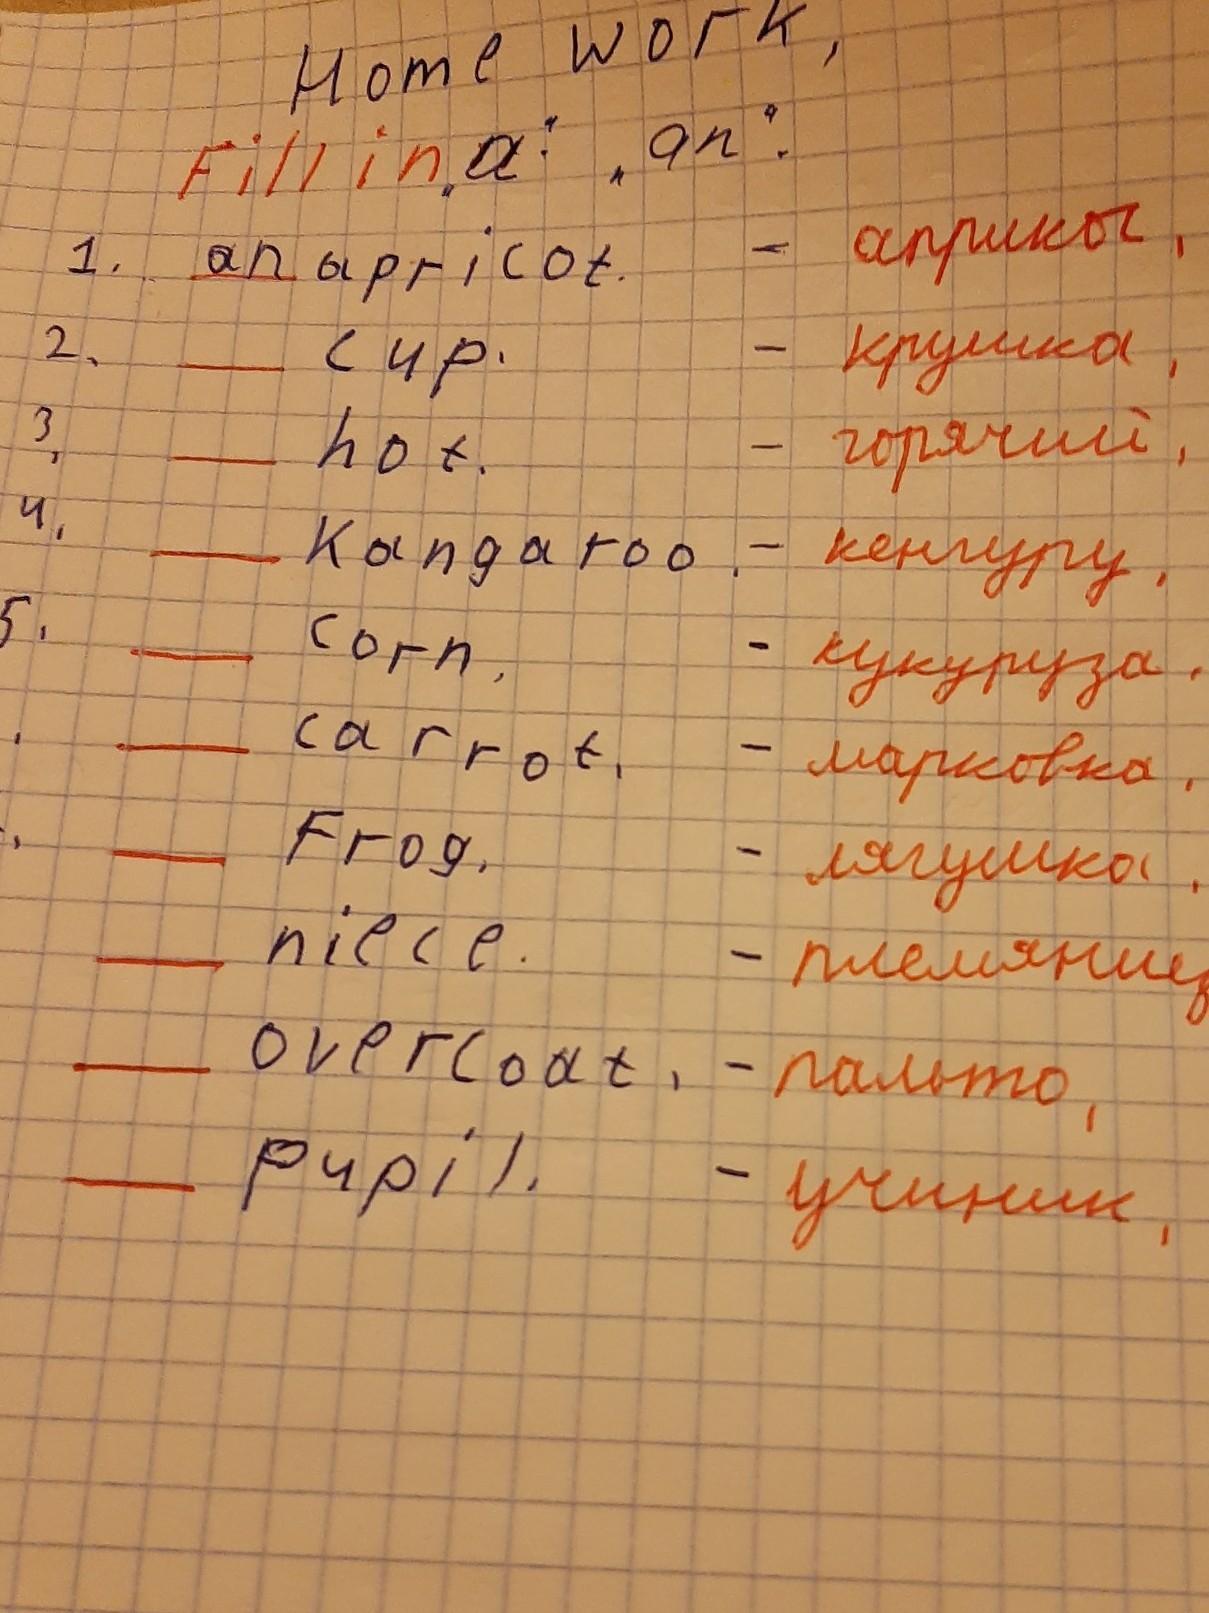 Home work,
Fill in „a“. „an“.
1. an apricot. - априкос,
2. ___ cup. - крушка,
3. ___ hot. - горячий,
4. ___ Kangaroo. - кенгуру,
5. ___ corn. - кукуруза.
. ___ carrot. - марковка,
. ___ Frog. - лягушка.
___ niece. - племянниц
___ overcoat. - пальто,
___ pupil. - учиник,